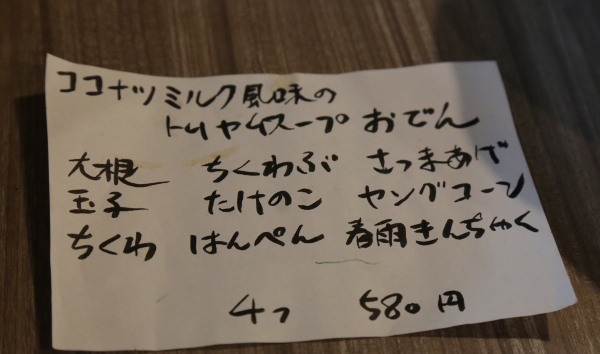 ココナツミルク風味の
トムヤムスープ おでん
大根 ちくわぶ さつまあげ
玉子 たけのこ ヤングコーン
ちくわ はんぺん 春雨きんちゃく
4つ 580円